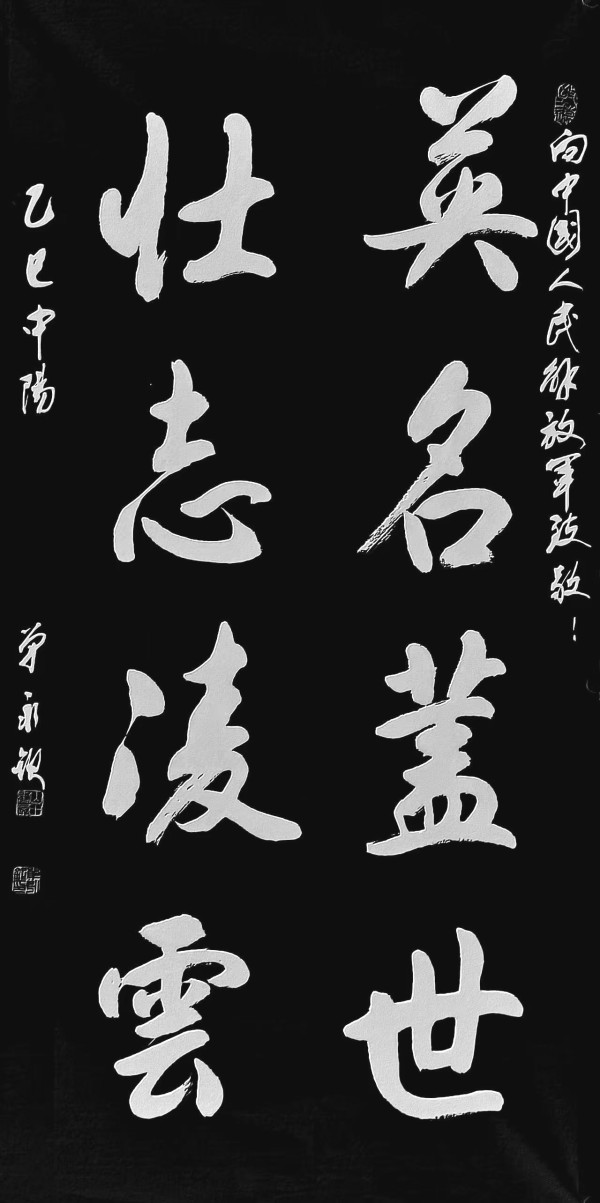 向中國人民解放軍致敬！
英名蓋世
壯志凌雲
乙巳中陽
單永欽